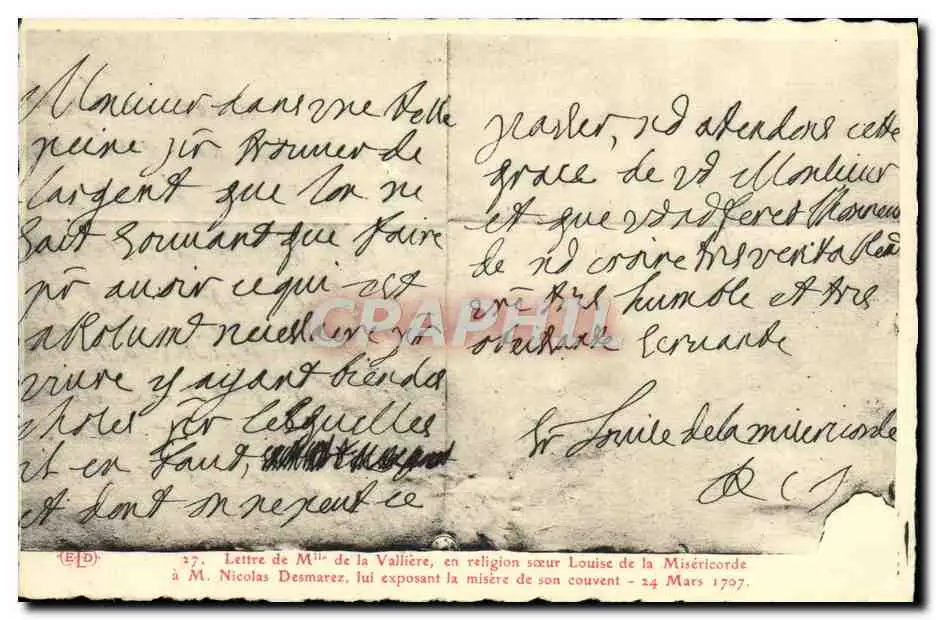 Monsieur dans une telle
peine pr trouver de
largent que lon ne
sait souuant que faire
pr auoir cequi est
absolumt necessaire pr
viure y ayant bien des
choses pr lesquelles
il en faut,
et dont on ne peut ce
passer, nd atendons cette
grace de vd Monsieur
et que vd nd feres lhonneur
de nd croire tres veritablemt
vre tres humble et tres
obeissante seruante
sr Louise de la misericorde
CARPHIL
E.L.D
27. Lettre de Mlle de la Vallière, en religion sœur Louise de la Miséricorde
à M. Nicolas Desmarez, lui exposant la misère de son couvent - 24 Mars 1707.